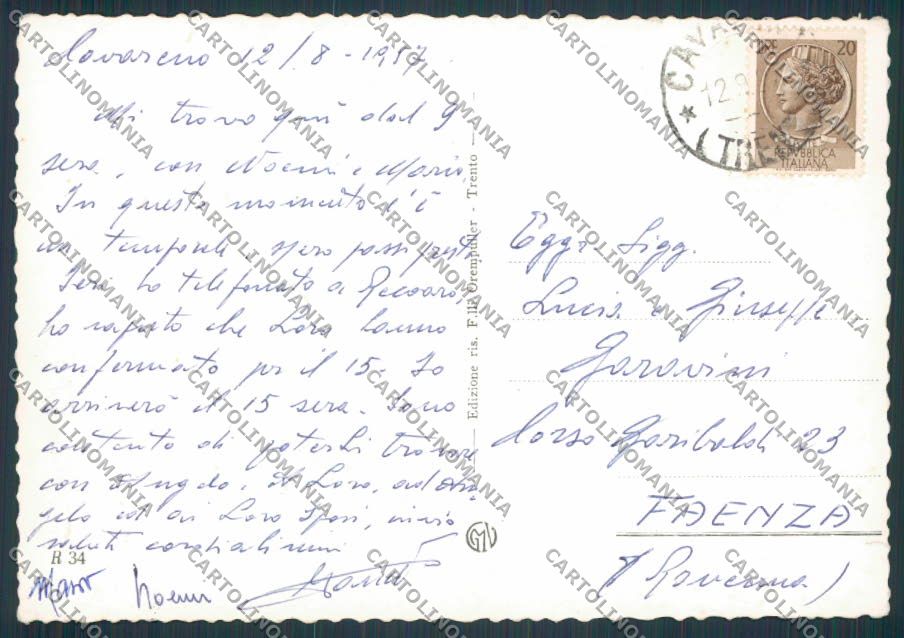 Cavareno 12/8-1957
Mi trovo quì dal 9
sera, con Noemi e Mario
In questo momento c'è
un temporale, spero passi presto
Ieri ho telefonato a Recoaro,
ho saputo che Loro hanno
confermato per il 15. Io
arriverò il 15 sera. Sono
contento di poterli trovare
con Angelo. A Loro, ad An-
gelo ed ai Loro Sposi, invio
saluti cordialissimi
R 34
Mario
Noemi
Edizione ris. F.lli Orempuller - Trento
CAVA
12.8
(TRE
20
REPVBBLICA
ITALIANA
Egg. Sigg.
Lucia e Giuseppe
Garavini
Corso Garibaldi 23
FAENZA
(Ravenna)
GMV
CARTOLINOMANIA